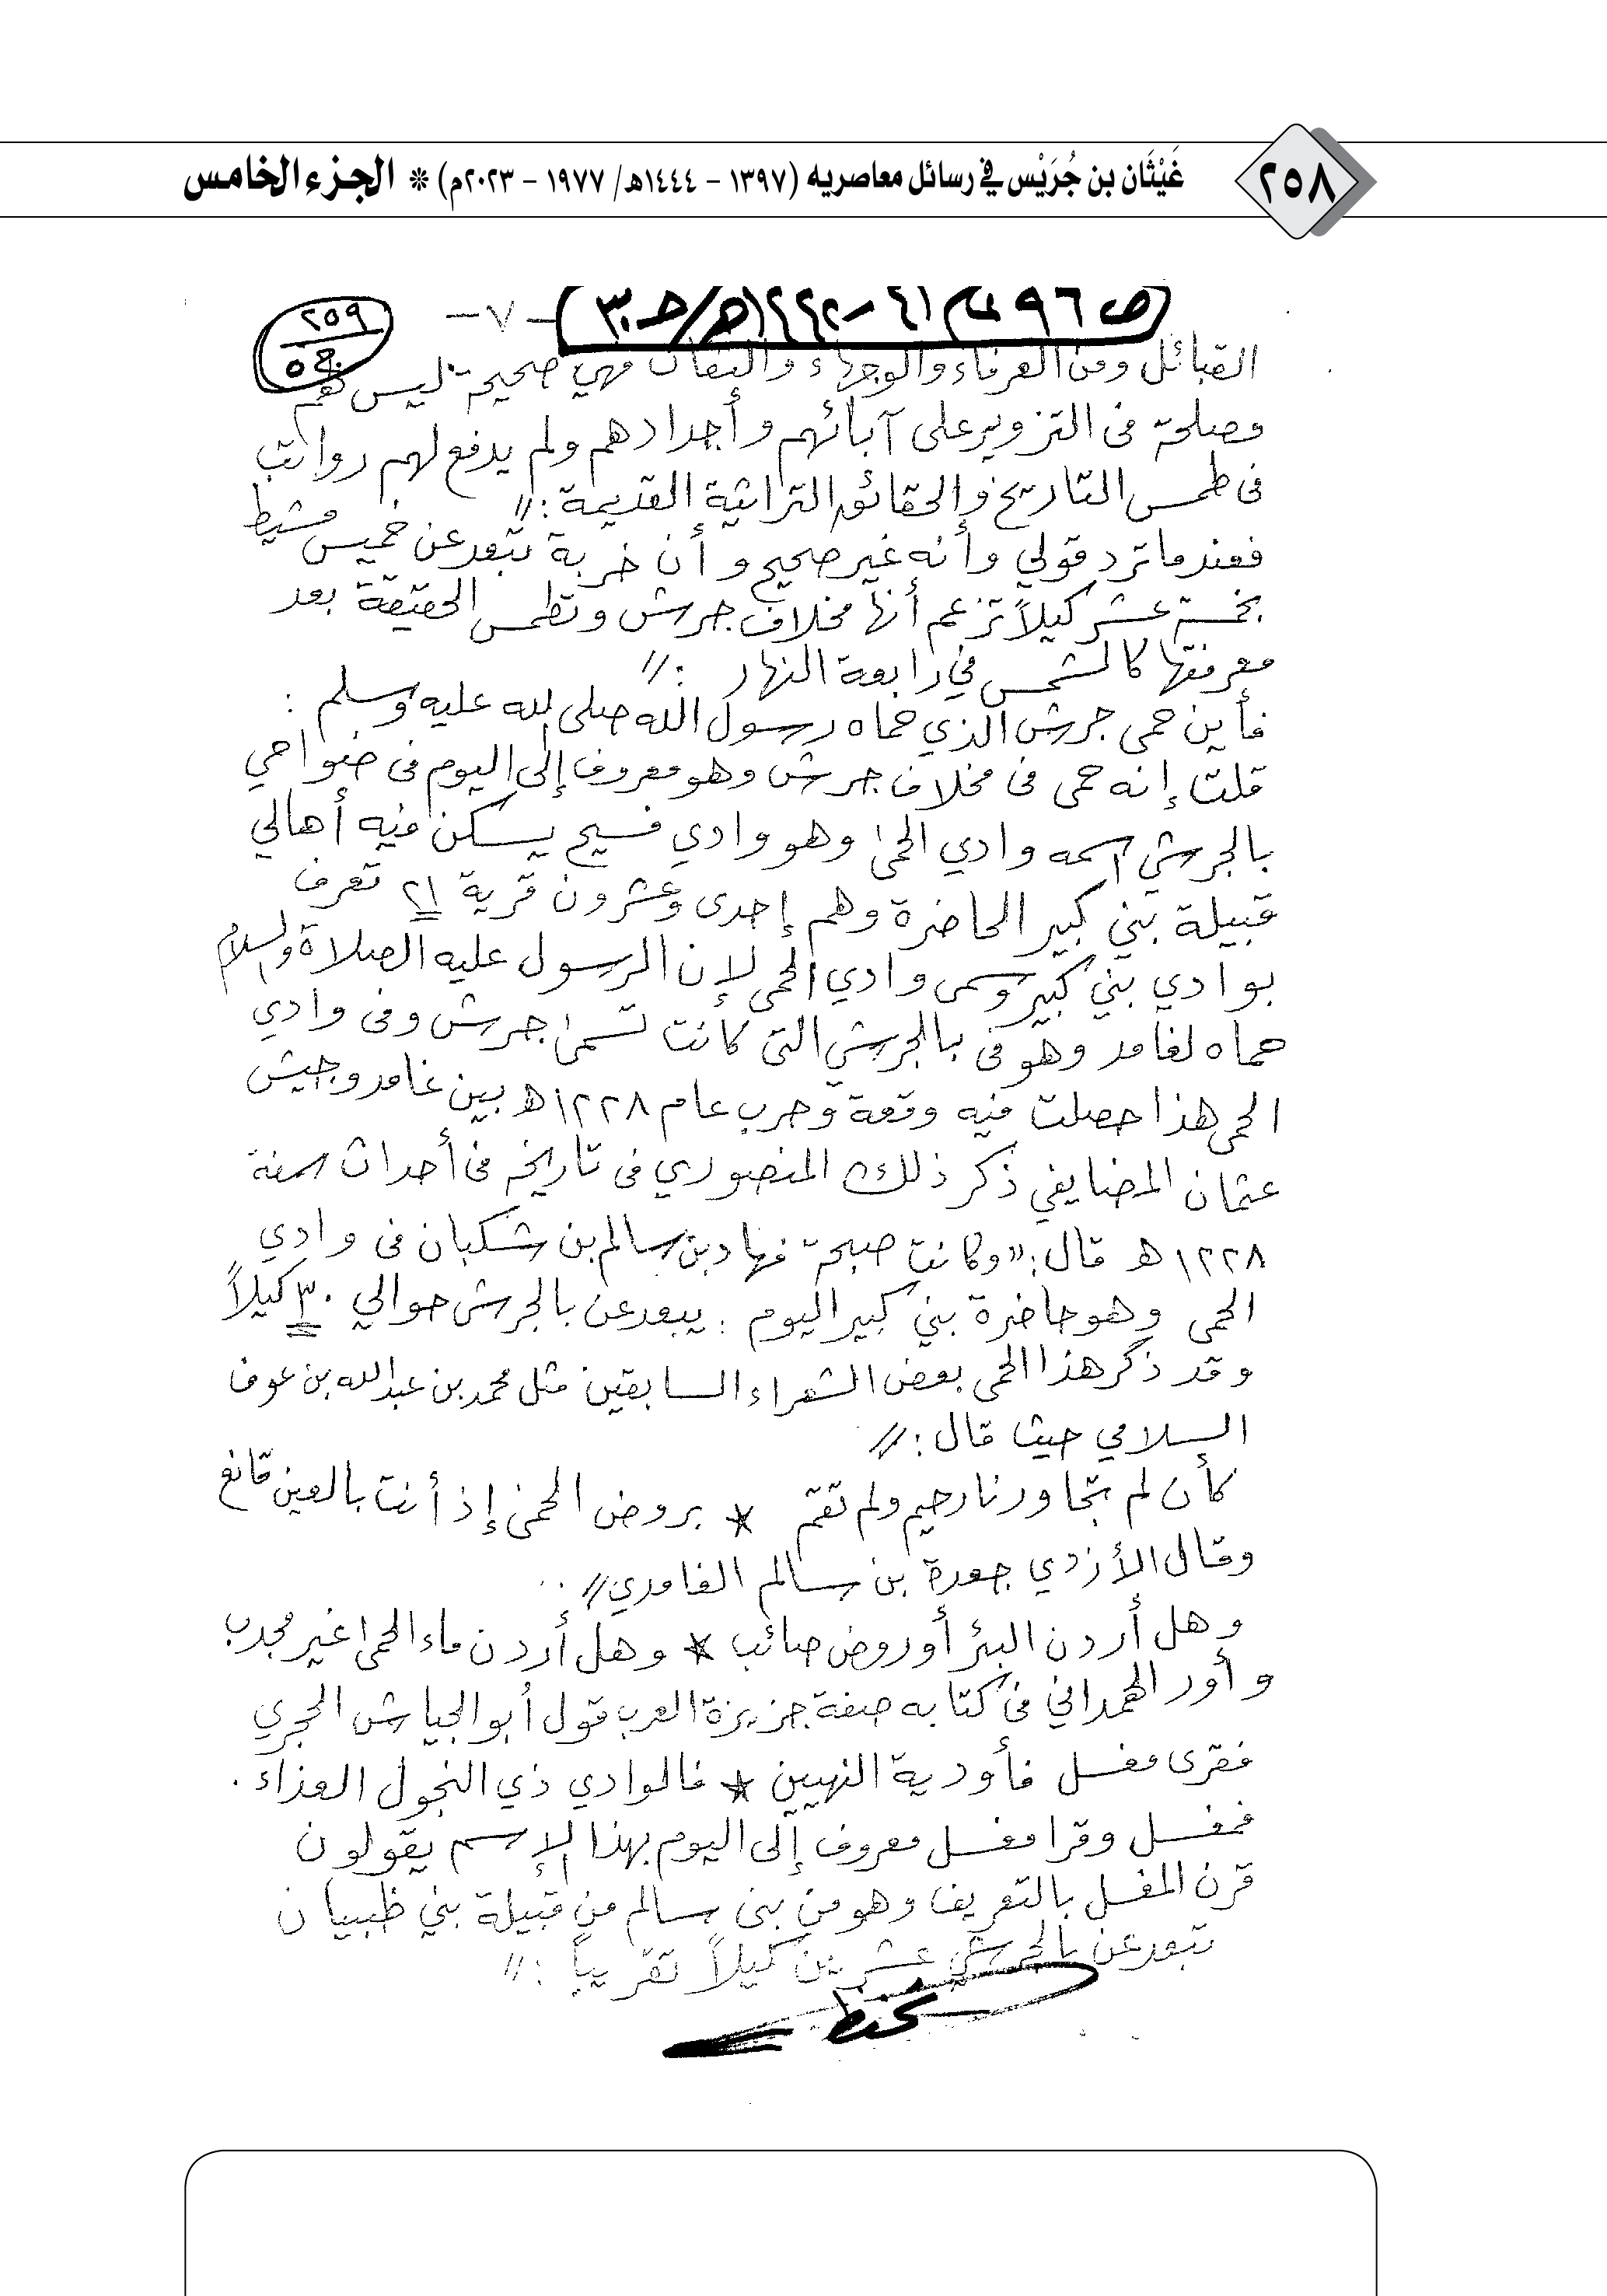 ٢٥٨
غَيْثَان بن جُرَيْس في رسائل معاصريه (١٣٩٧ - ١٤٤٤هـ/ ١٩٧٧ - ٢٠٢٣م) * الجزء الخامس
-٧-
٢٥٩
ج٥
القبائل ومن العرفاء والوجهاء والثقات فهي صحيحة ليس لهم
مصلحة فى التزوير على آبائهم وأجدادهم ولم يدفع لهم رواتب
فى طمس التاريخ والحقائق التراثية القديمة ://
فعندما ترد قولي وأنه غير صحيح وأن خربة تبعد عن خميس مشيط
بخمسة عشر كيلاً تزعم أنها مخلاف جرش وتطمس الحقيقة بعد
معرفتها كالشمس في رابعة النهار ://
فأين حمى جرش الذي حماه رسول الله صلى لله عليه وسلم :
قلت إنه حمى فى مخلاف جرش وهو معروف إلى اليوم فى ضواحي
بالجرشي اسمه وادي الحمى وهو وادي فسيح يسكن فيه أهالي
قبيلة بني كبير الحاضرة وهم إحدى وعشرون قرية ٢١ تعرف
بوادي بني كبير وسمى وادي الحمى لإن الرسول عليه الصلاة والسلام
حماه لغامد وهو فى بالجرشي التى كانت تسمى جرش وفى وادي
الحمى هذا حصلت فيه وقعة وحرب عام ١٢٢٨هـ بين غامد وجيش
عثمان المضايفي ذكر ذلك المنصوري فى تاريخه فى أحداث سنة
١٢٢٨هـ قال: "وكانت صبحة فهاد بن سالم بن شكبان فى وادي
الحمى وهو حاضرة بني كبير اليوم : يبعد عن بالجرش حوالي ٣٠ كيلاً
وقد ذكر هذا الحمى بعض الشعراء السابقين مثل محمد بن عبدالله بن عوف
السلامي حيث قال ://
كأن لم تجاورنا رحيم ولم تقم * بروض الحمى إذ أنت بالعين قانع
وقال الأزدي جعدة بن سالم الغامدي// ..
وهل أردن البئر أو روض صائب * وهل أردن ماء الحمى غير مجدب
وأورد الهمداني فى كتابه صفة جزيرة العرب قول أبو الحياش الحجري
فقرى مغسل فأودية النهيين * فالوادي ذي النجول العذاء .
فمغسل وقرا مغسل معروف إلى اليوم بهذا الإسم يقولون
قرن المغسل بالتعريف وهو من بنى سالم من قبيلة بني ظبيان
تبعد عن بالجرشي عشرين كيلاً تقريباً ://